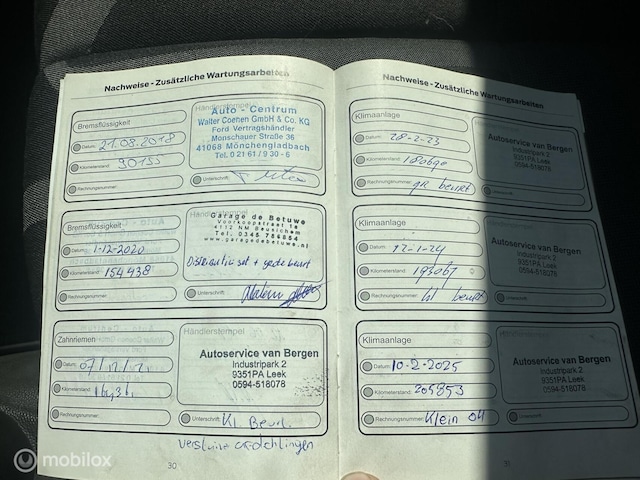 Nachweise - Zusätzliche Wartungsarbeiten
Bremsflüssigkeit
Datum: 21.08.2018
Kilometerstand: 90155
Rechnungsnummer:
Händlerstempel
Auto - Centrum
Walter Coenen GmbH & Co. KG
Ford Vertragshändler
Monschauer Straße 36
41068 Mönchengladbach
Tel. 02161/930-6
Unterschrift:
Bremsflüssigkeit
Datum: 1-12-2020
Kilometerstand: 154438
Rechnungsnummer:
Garage de Betuwe
4112 NM Beusichem
Tel. 0345 756854
www.garagedebetuwe.nl
+ grote beurt
Unterschrift:
Zahnriemen
Datum:
Kilometerstand:
Rechnungsnummer:
Händlerstempel
Autoservice van Bergen
Industripark 2
9351PA Leek
0594-518078
Unterschrift: Kl. Beurt.
30
Nachweise - Zusätzliche Wartungsarbeiten
Klimaanlage
Datum: 28-2-23
Kilometerstand: 180690
Rechnungsnummer: gr beurt
Autoservice van Bergen
Industripark 2
9351PA Leek
0594-518078
Unterschrift:
Klimaanlage
Datum: 12-1-24
Kilometerstand: 193061
Rechnungsnummer: kl beurt
Autoservice van Bergen
Industripark 2
9351PA Leek
0594-518078
Unterschrift:
Klimaanlage
Datum: 10-2-2025
Kilometerstand: 205853
Rechnungsnummer: Klein
Autoservice van Bergen
Industripark 2
9351PA Leek
0594-518078
Unterschrift:
mobilox